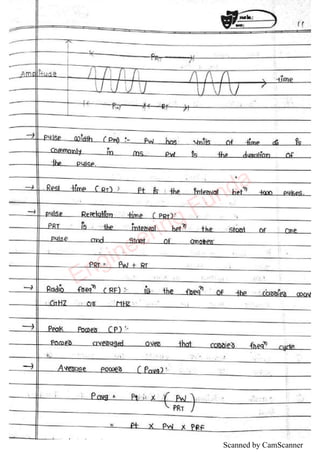 11
PRT
Amplitude
time
PW RT
→ pulse width (PW) :- PW has units of time & is
commonly in ms. PW is the duration of
the pulse.
→ Rest time (RT) : It is the interval betⁿ two pulses.
→ pulse Repetation time (PRT):
PRT is the interval betⁿ the start of one
pulse and start of another
PRT = PW + RT
→ Radio freqⁿ (RF) :- is the freqⁿ of the carrier
GHZ or MHz
→ Peak Power (P) :-
Power averaged over that carrier freqⁿ cycle
→ Average power (Pavg) :
Pavg = Pt x ( PW / PRT )
= Pt x PW x PRF
Engineering Funda
Scanned by CamScanner